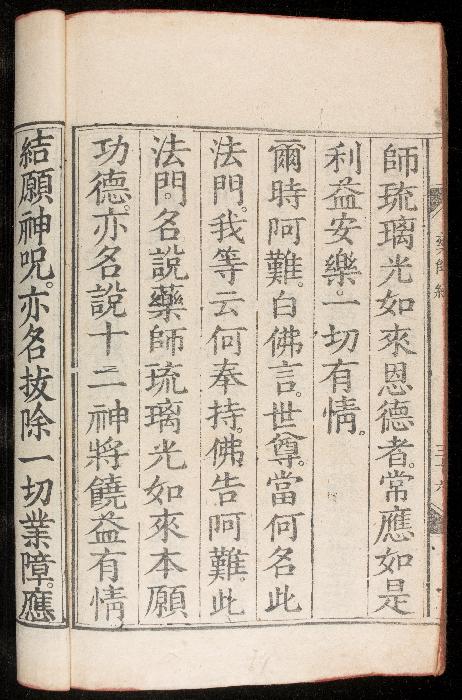 師琉璃光如來恩德者。常應如是
利益安樂。一切有情。
爾時阿難。白佛言。世尊。當何名此
法門。我等云何奉持。佛告阿難。此
法門。名說藥師琉璃光如來本願
功德。亦名說十二神將饒益有情
結願神呪。亦名拔除一切業障。應